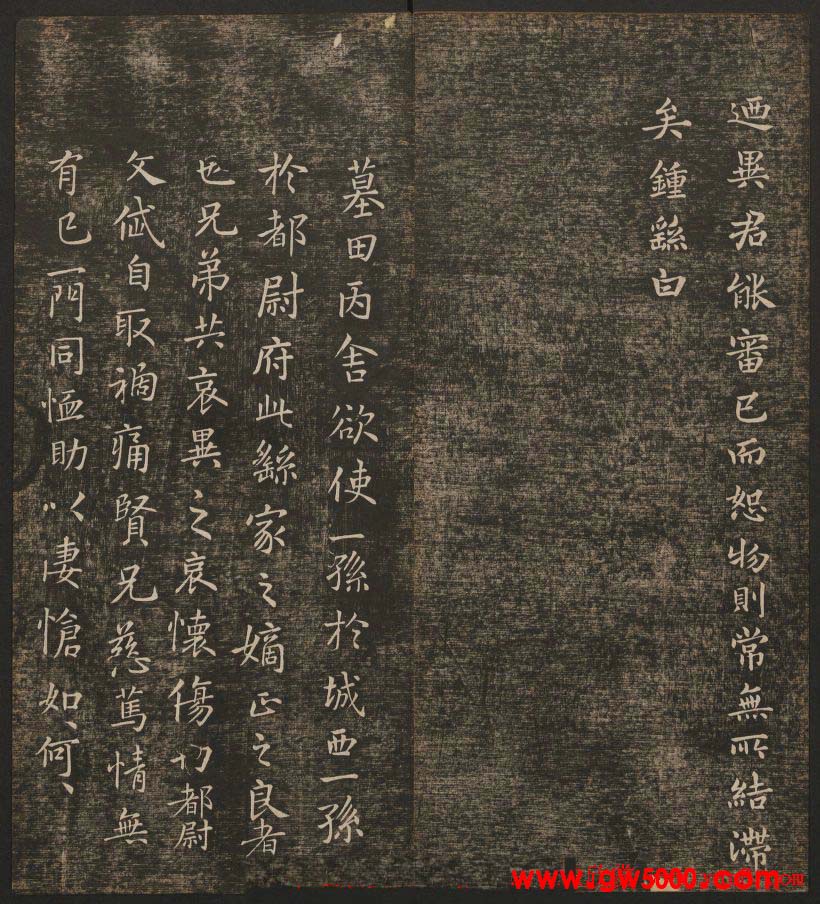 迺異君能審己而恕物則常無所結滯
矣鍾繇白
墓田丙舍欲使一孫於城西一孫
於都尉府此繇家之嫡正之良者
也兄弟共哀異之哀懷傷切都尉
文岱自取禍痛賢兄慈篤情無
有已一門同恤助以悽愴如、何、
www.jgw5000.com